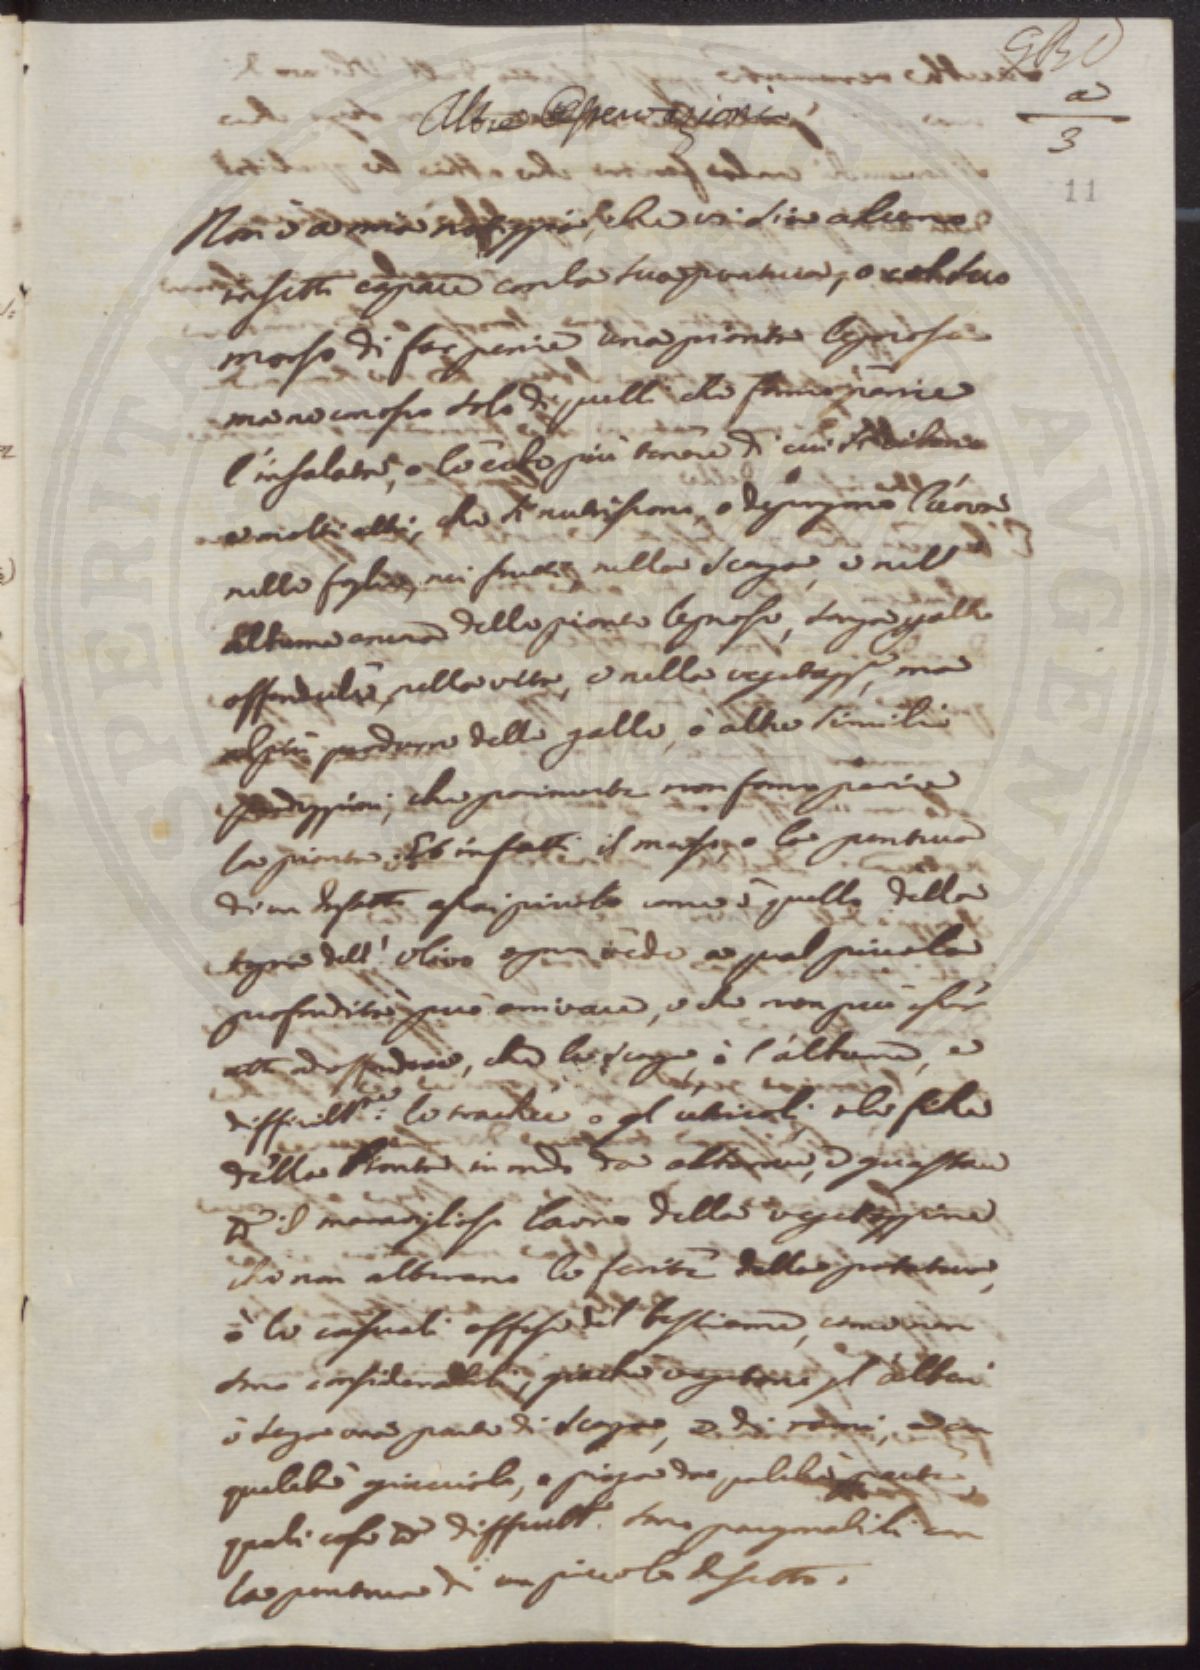 GBO
a
3
11
Altre Osservazioni
Non è a mia notizia, che vi sia alcuno
insetto capace con la sua puntura, o col suo
morso di far perire una pianta legnosa
ma ne conosco solo di quelli che fanno perire
l'insalate, o le erbe più tenere di cui si cibano
e molti altri, che si nutriscono, o depongono l'uova
nelle foglie, nei frutti, nella scorza, e nell'
alburno ancora delle piante legnose, senza
offenderle, nella vita, e nella vegetaz.e, ma
al più produrre delle galle, o altre simili
produzzioni, che parimente non fanno perire
la pianta. Ed infatti il morso, o la puntura
di un Insetto assai piccolo come è quello della
tigna dell' olivo ognun vede a qual piccola
profondità può arrivare, e che non può
atto ad offendere, che la scorza, o l'alburno, e
difficilm.e le trachee o gl' utricoli, e le fibre
della Pianta in modo da alterare, o guastare
il maraviglioso lavoro della vegetazzione
che non alterano le ferite della potatura,
o le casuali offese del bestiame, come non
sono considerabili, giacchè vegetano gl' alberi
o senza una parte di scorza, o di rami, e con
qualche, o piega da qualche parte
quali cose difficilm.e sono paragonabili con
la puntura di un piccolo Insetto.